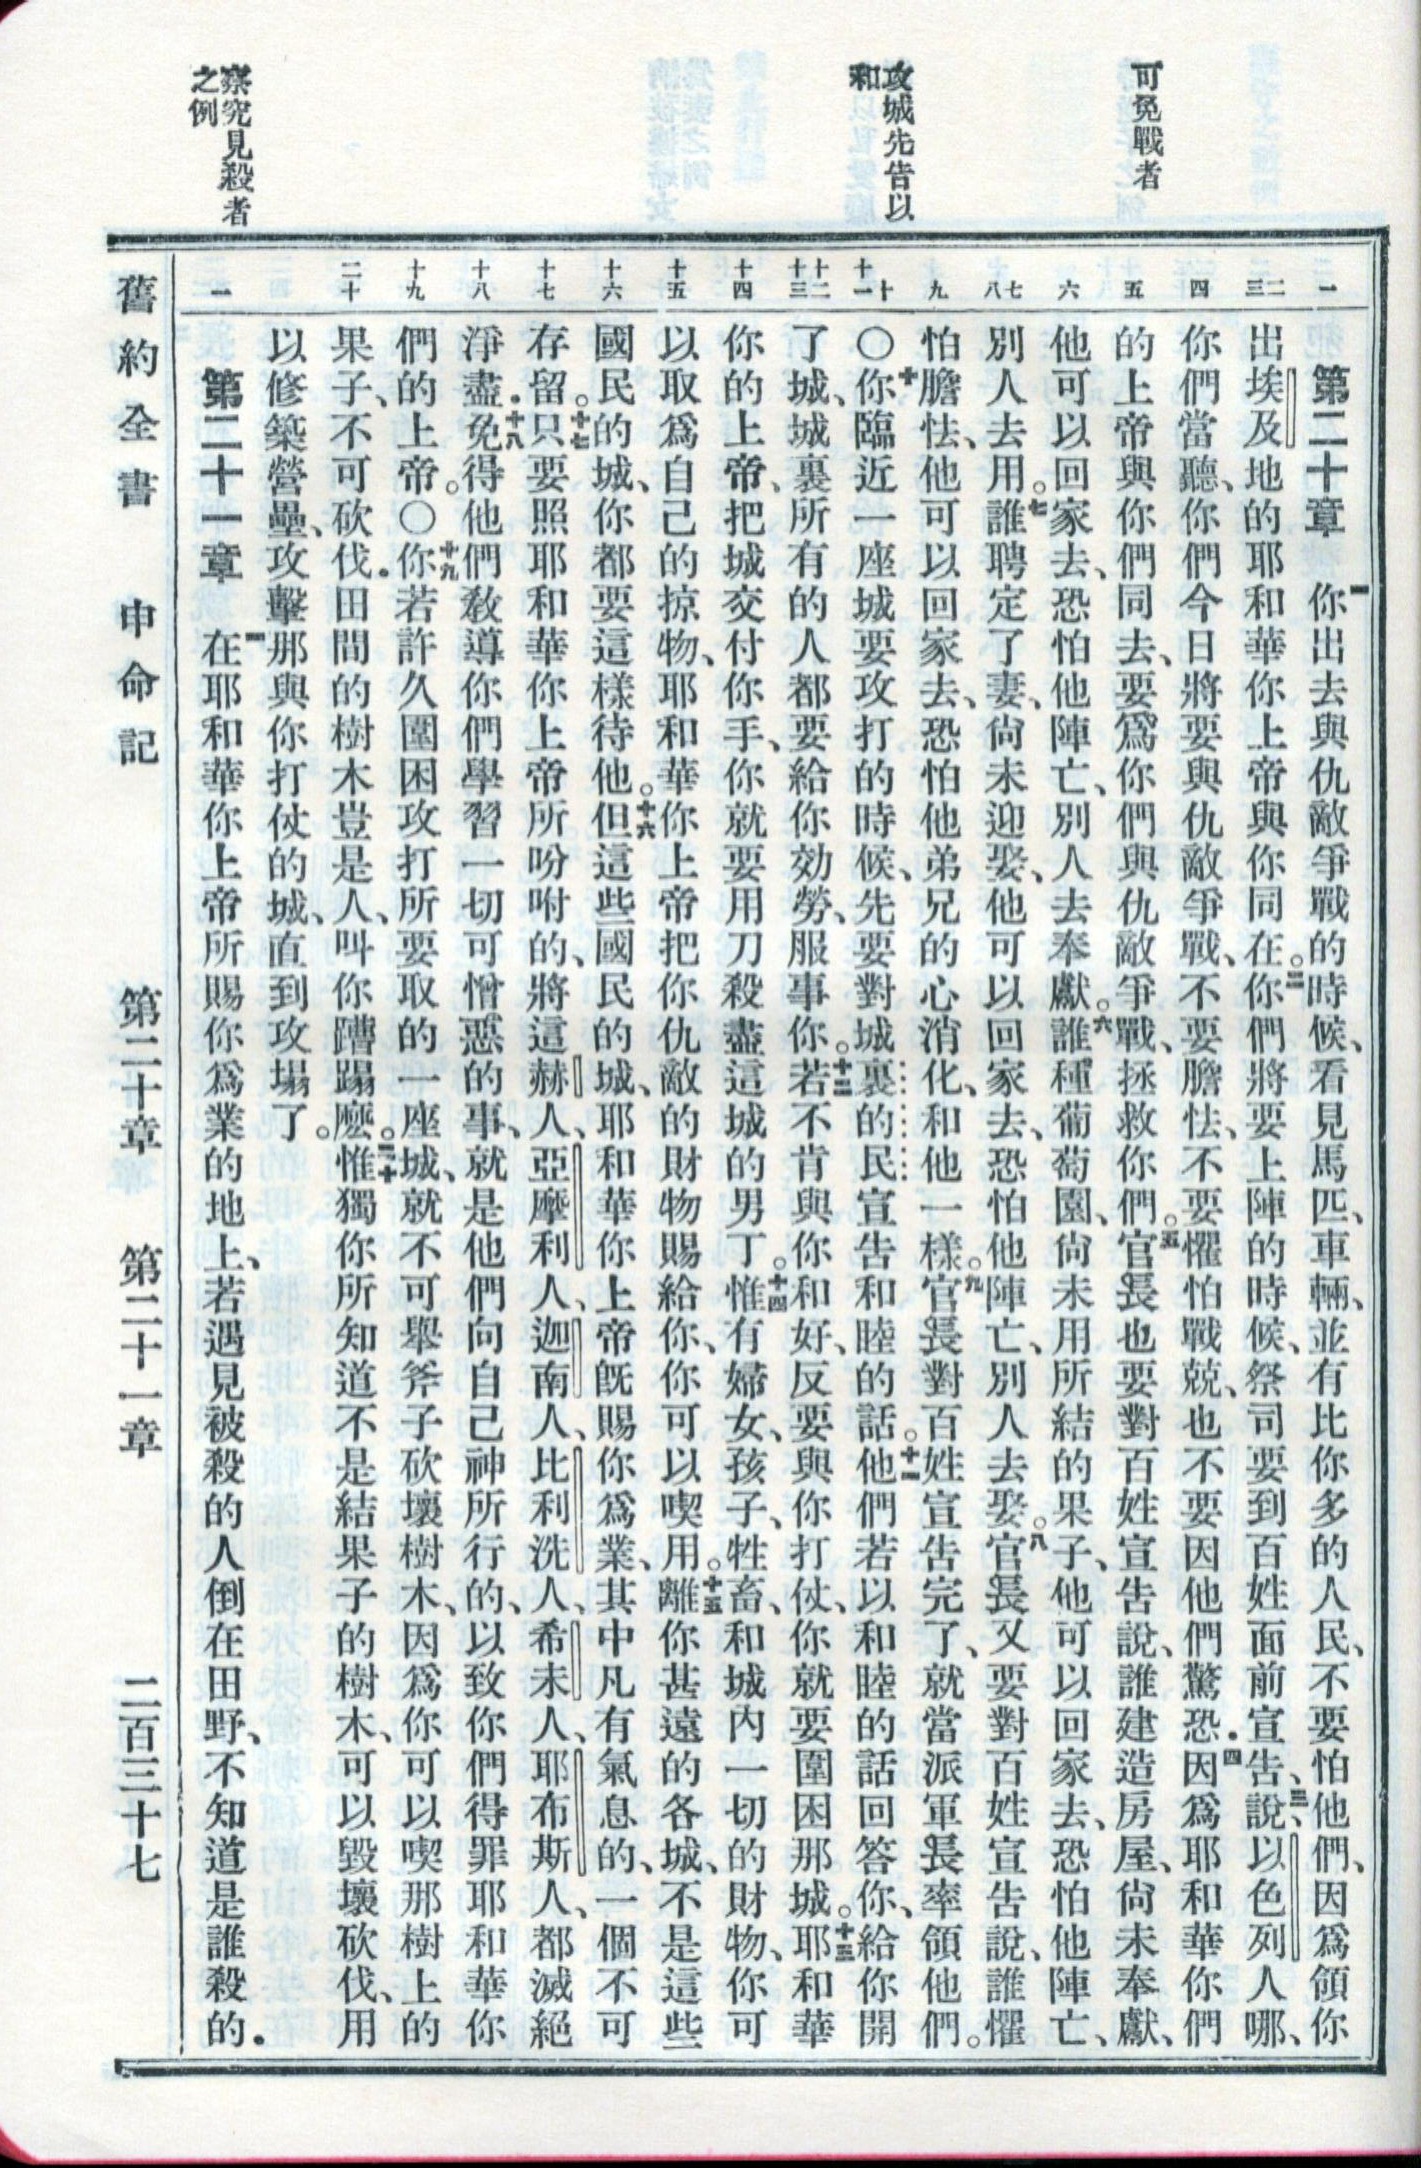 可免戰者
攻城先告以
和
察究見殺者
之例
一
二三
四
五
六
七八
九
十十一
十二十三
十四
十五
十六
十七
十八
十九
二十
一
第二十章　一你出去與仇敵爭戰的時候、看見馬匹、車輛、並有比你多的人民、不要怕他們、因爲領你
出埃及地的耶和華你上帝與你同在。二你們將要上陣的時候、祭司要到百姓面前宣告說、三以色列人哪、
你們當聽、你們今日將要與仇敵爭戰、不要膽怯、不要懼怕戰兢、也不要因他們驚恐．四因爲耶和華你們
的上帝與你們同去、要爲你們與仇敵爭戰、拯救你們。五官長也要對百姓宣告說、誰建造房屋、尙未奉獻、
他可以回家去、恐怕他陣亡、別人去奉獻。六誰種葡萄園、尙未用所結的果子、他可以回家去、恐怕他陣亡、
別人去用。七誰聘定了妻、尙未迎娶、他可以回家去、恐怕他陣亡、別人去娶。八官長又要對百姓宣告說、誰懼
怕膽怯、他可以回家去、恐怕他弟兄的心消化、和他一樣。九官長對百姓宣告完了、就當派軍長率領他們。
〇十你臨近一座城要攻打的時候、先要對城裏的民宣告和睦的話。十一他們若以和睦的話回答你、給你開
了城、城裏所有的人都要給你効勞、服事你。十二若不肯與你和好、反要與你打仗、你就要圍困那城。十三耶和華
你的上帝、把城交付你手、你就要用刀殺盡這城的男丁。十四惟有婦女、孩子、牲畜、和城內一切的財物、你可
以取爲自己的掠物、耶和華你上帝把你仇敵的財物賜給你、你可以喫用。十五離你甚遠的各城、不是這些
國民的城、你都要這樣待他。十六但這些國民的城、耶和華你上帝旣賜你爲業、其中凡有氣息的、一個不可
存留。十七只要照耶和華你上帝所吩咐的、將這赫人、亞摩利人、迦南人、比利洗人、希未人、耶布斯人、都滅絕
淨盡．十八免得他們敎導你們學習一切可憎惡的事、就是他們向自己神所行的、以致你們得罪耶和華你
們的上帝。〇十九你若許久圍困攻打所要取的一座城、就不可舉斧子砍壞樹木、因爲你可以喫那樹上的
果子、不可砍伐．田間的樹木豈是人、叫你蹧蹋麽。二十惟獨你所知道不是結果子的樹木、可以毀壞砍伐、用
以修築營壘、攻擊那與你打仗的城、直到攻塌了。
第二十一章　一在耶和華你上帝所賜你爲業的地上、若遇見被殺的人倒在田野、不知道是誰殺的．
舊約全書　申命記　第二十章　第二十一章　二百三十七